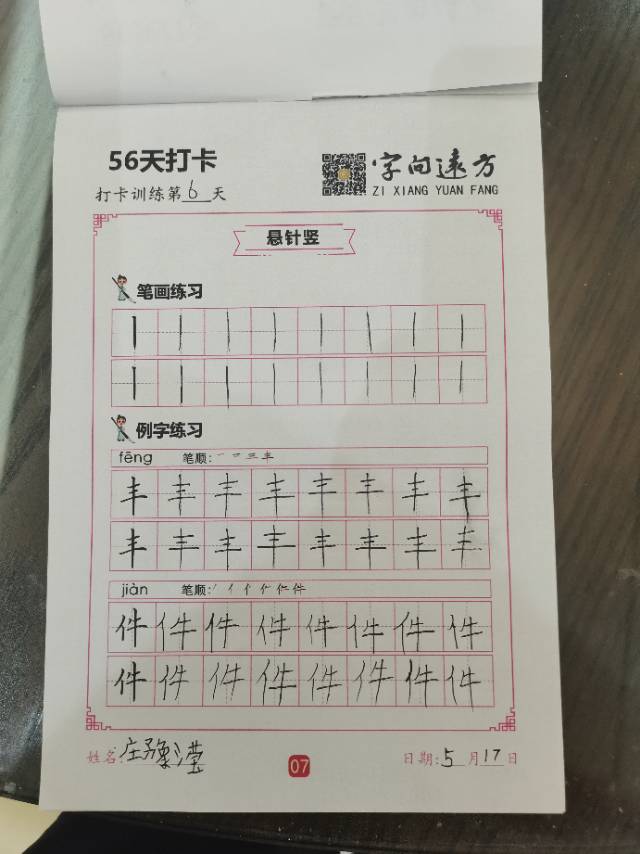 56天打卡
字向远方
ZI XIANG YUAN FANG
打卡训练第6天
悬针竖
笔画练习
例字练习
fēng 笔顺: 一 二 三 丰
丰 丰 丰 丰 丰 丰 丰 丰
丰 丰 丰 丰 丰 丰 丰 丰
jiàn 笔顺: 丿 亻 亻 仁 仁 件
件 件 件 件 件 件 件 件
件 件 件 件 件 件 件 件
姓名:庄豫滢
07
日期:5月17日